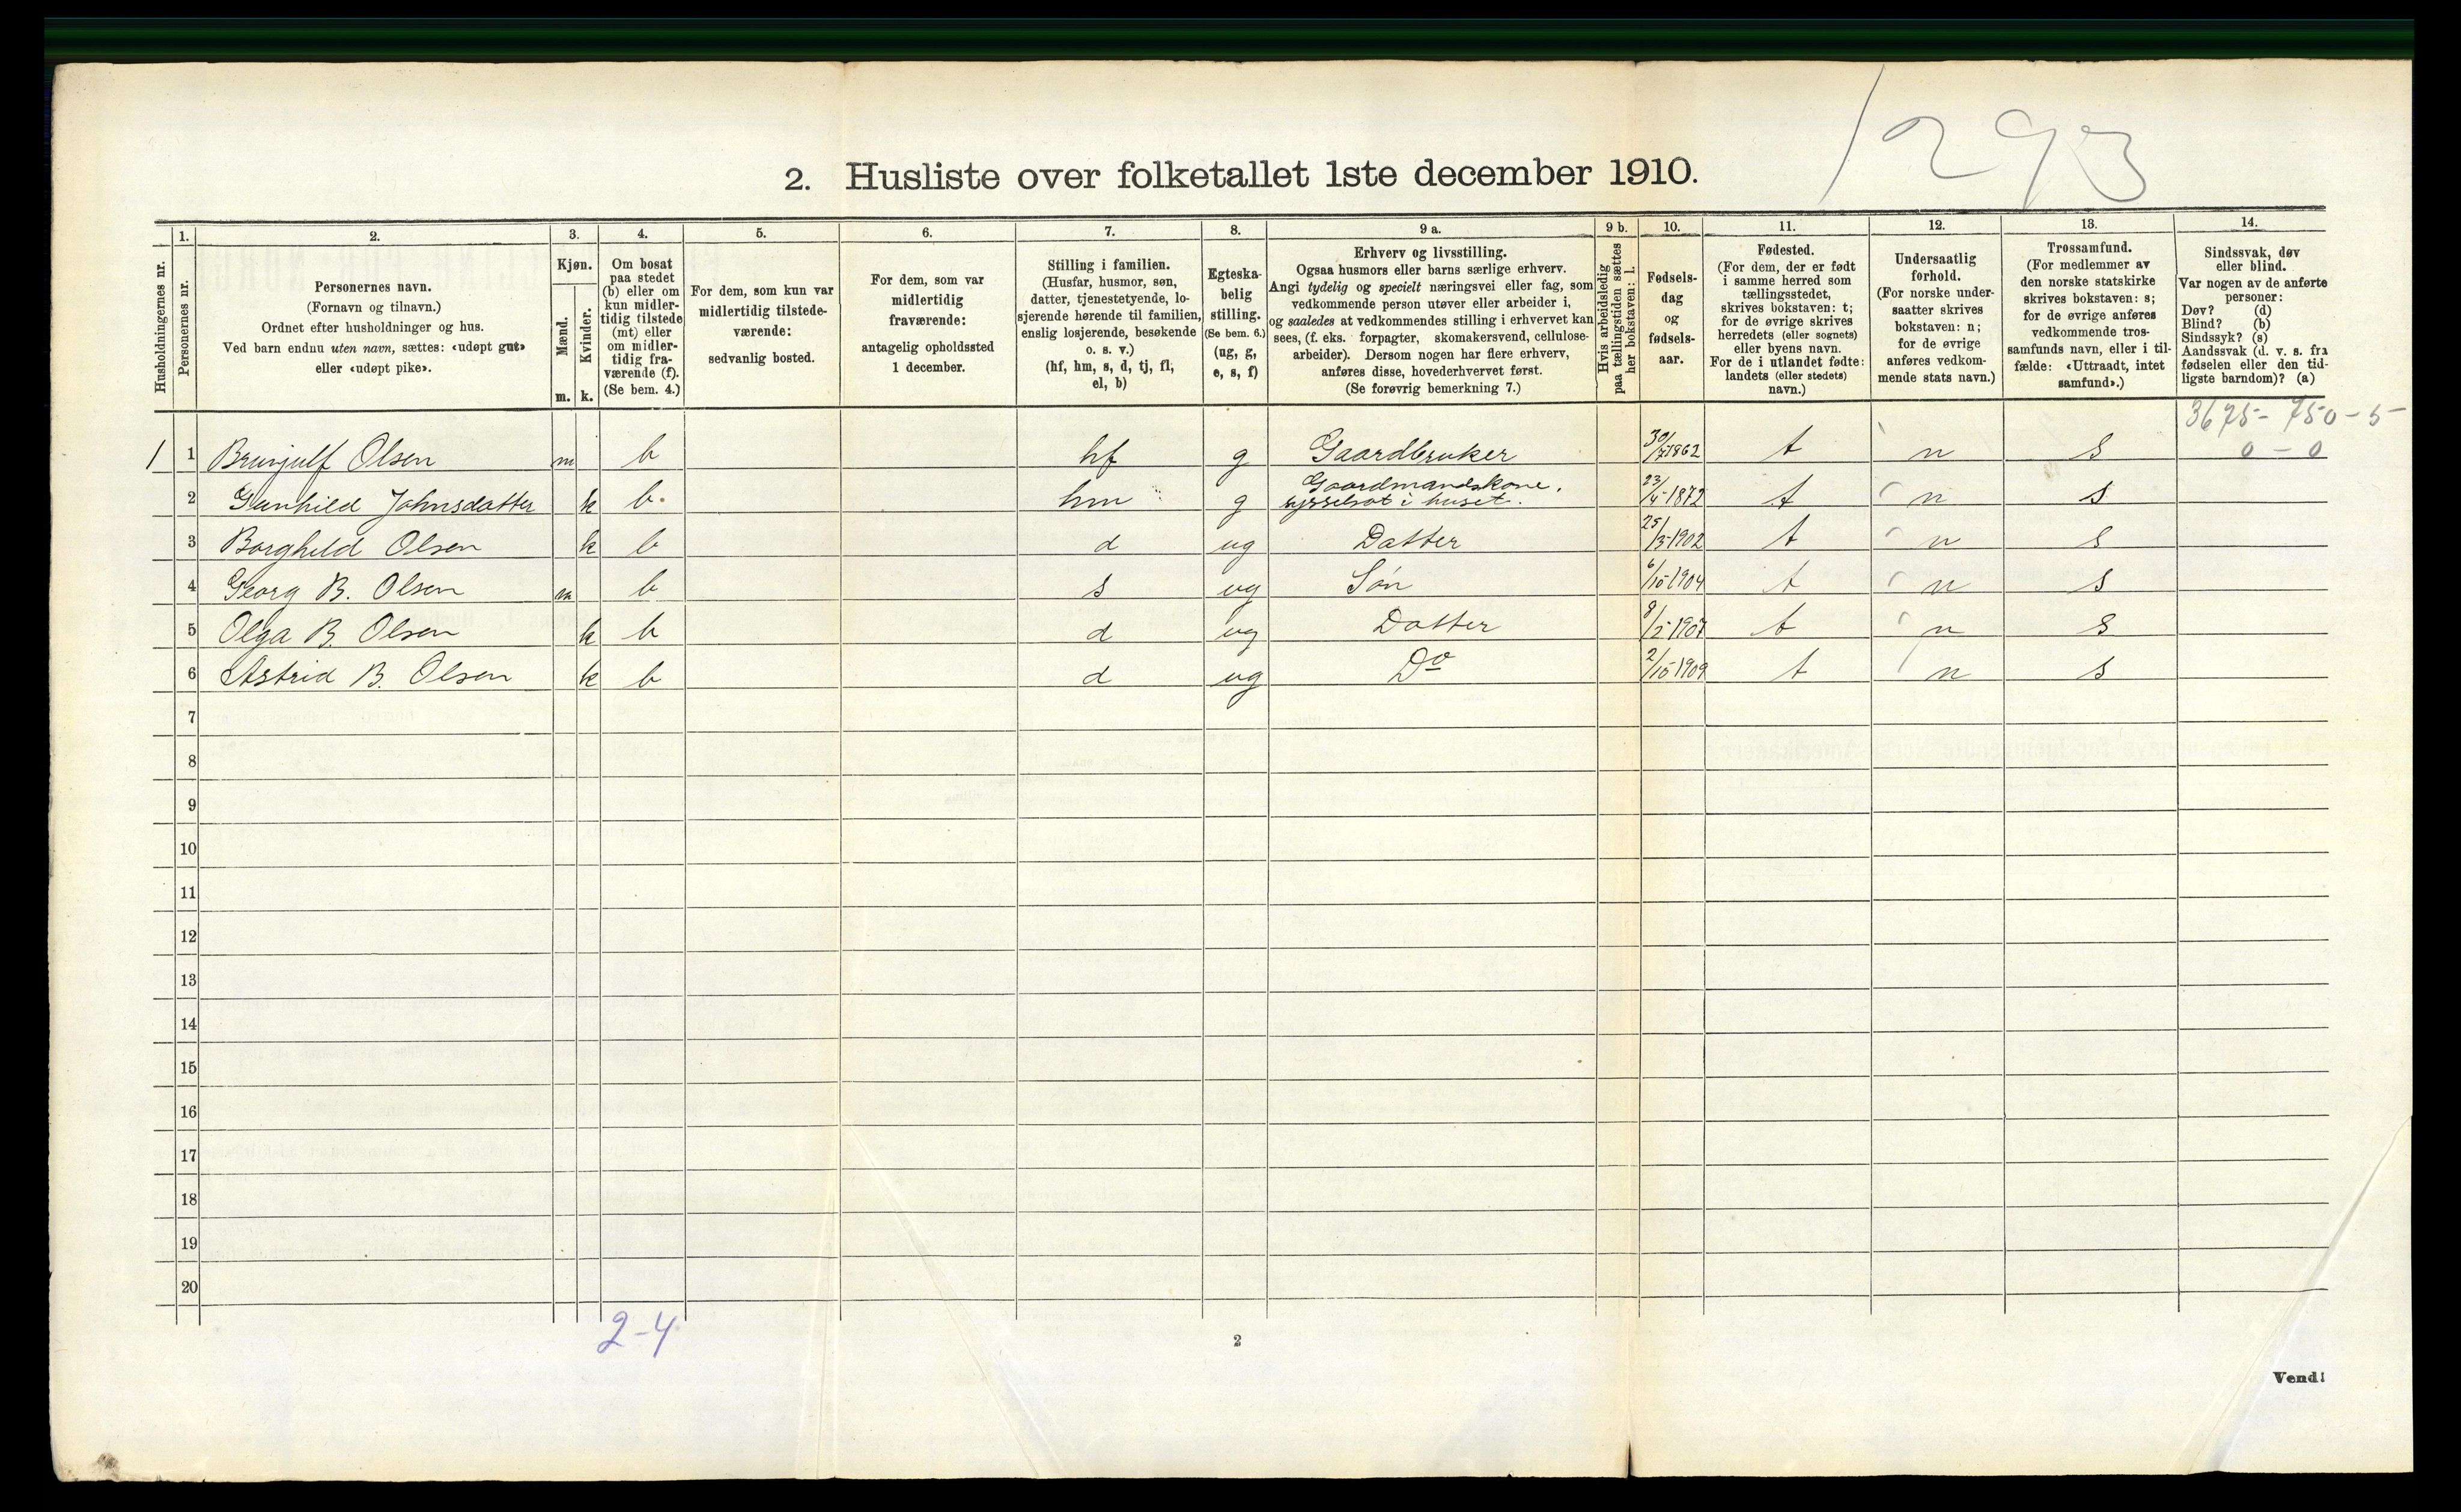 1293
2. Husliste over folketallet 1ste december 1910.
Husholdningernes nr.
1. Personernes nr.
2. Personernes navn.
(Fornavn og tilnavn.)
Ordnet efter husholdninger og hus.
Ved barn endnu uten navn, sættes: «udøpt gut»
eller «udøpt pike».
3. Kjøn.
Mænd. Kvinder.
m. k.
4. Om bosat
paa stedet
(b) eller om
kun midler-
tidig tilstede
(mt) eller
om midler-
tidig fra-
værende (f).
(Se bem. 4.)
5. For dem, som kun var
midlertidig tilstede-
værende:
sedvanlig bosted.
6. For dem, som var
midlertidig
fraværende:
antagelig opholdssted
1 december.
7. Stilling i familien.
(Husfar, husmor, søn,
datter, tjenestetyende, lo-
sjerende hørende til familien,
enslig losjerende, besøkende
o. s. v.)
(hf, hm, s, d, tj, fl,
el, b)
8. Egteska-
belig
stilling.
(Se bem. 6.)
(ug, g,
e, s, f)
9 a. Erhverv og livsstilling.
Ogsaa husmors eller barns særlige erhverv.
Angi tydelig og specielt næringsvei eller fag, som
vedkommende person utøver eller arbeider i,
og saaledes at vedkommendes stilling i erhvervet kan
sees, (f. eks. forpagter, skomakersvend, cellulose-
arbeider). Dersom nogen har flere erhverv,
anføres disse, hovederhvervet først.
(Se forøvrig bemerkning 7.)
9 b. Hvis arbeidsledig
paa tællingstiden sættes
her bokstaven: l.
10. Fødsels-
dag
og
fødsels-
aar.
11. Fødested.
(For dem, der er født
i samme herred som
tællingsstedet,
skrives bokstaven: t;
for de øvrige skrives
herredets (eller sognets)
eller byens navn.
For de i utlandet fødte:
landets (eller stedets)
navn.)
12. Undersaatlig
forhold.
(For norske under-
saatter skrives
bokstaven: n;
for de øvrige
anføres vedkom-
mende stats navn.)
13. Trossamfund.
(For medlemmer av
den norske statskirke
skrives bokstaven: s;
for de øvrige anføres
vedkommende tros-
samfunds navn, eller i til-
fælde: «Uttraadt, intet
samfund».)
14. Sindssvak, døv
eller blind.
Var nogen av de anførte
personer:
Døv? (d)
Blind? (b)
Sindssyk? (s)
Aandssvak (d. v. s. fra
fødselen eller den tid-
ligste barndom)? (a)
3675- 750-5-
0-0
1 1 Brunjulf Olsen m b hf g Gaardbruker 30/7 1862 t n s
2 Gunhild Johnsdatter k b. hm g Gaardmandskone, sysselsat i huset. 23/4-1872 t n s
3 Borghild Olsen k b d ug Datter 25/3-1902 t n s
4 Georg B. Olsen m b s ug Søn 6/10-1904 t n s
5 Olga B. Olsen k b d ug Datter 8/5-1907 t n s
6 Astrid B. Olsen k b d ug Do 2/10-1909 t n s
7
8
9
10
11
12
13
14
15
16
17
18
19
20
2-4
2
Vend!